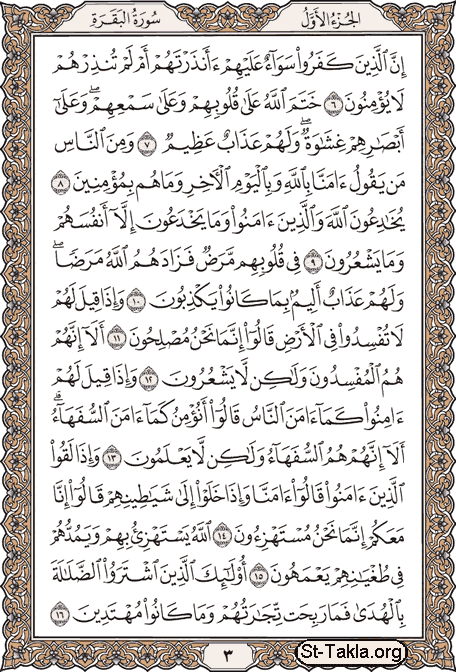 الجزء الأول
سورة البقرة
إِنَّ ٱلَّذِينَ كَفَرُوا۟ سَوَآءٌ عَلَيْهِمْ ءَأَنذَرْتَهُمْ أَمْ لَمْ تُنذِرْهُمْ
لَا يُؤْمِنُونَ ٦ خَتَمَ ٱللَّهُ عَلَىٰ قُلُوبِهِمْ وَعَلَىٰ سَمْعِهِمْ ۖ وَعَلَىٰٓ
أَبْصَٰرِهِمْ غِشَٰوَةٌ ۖ وَلَهُمْ عَذَابٌ عَظِيمٌ ٧ وَمِنَ ٱلنَّاسِ
مَن يَقُولُ ءَامَنَّا بِٱللَّهِ وَبِٱلْيَوْمِ ٱلْءَاخِرِ وَمَا هُم بِمُؤْمِنِينَ ٨
يُخَٰدِعُونَ ٱللَّهَ وَٱلَّذِينَ ءَامَنُوا۟ وَمَا يَخْدَعُونَ إِلَّآ أَنفُسَهُمْ
وَمَا يَشْعُرُونَ ٩ فِى قُلُوبِهِم مَّرَضٌ فَزَادَهُمُ ٱللَّهُ مَرَضًا ۖ
وَلَهُمْ عَذَابٌ أَلِيمٌۢ بِمَا كَانُوا۟ يَكْذِبُونَ ١٠ وَإِذَا قِيلَ لَهُمْ
لَا تُفْسِدُوا۟ فِى ٱلْأَرْضِ قَالُوٓا۟ إِنَّمَا نَحْنُ مُصْلِحُونَ ١١ أَلَآ إِنَّهُمْ
هُمُ ٱلْمُفْسِدُونَ وَلَٰكِن لَّا يَشْعُرُونَ ١٢ وَإِذَا قِيلَ لَهُمْ
ءَامِنُوا۟ كَمَآ ءَامَنَ ٱلنَّاسُ قَالُوٓا۟ أَنُؤْمِنُ كَمَآ ءَامَنَ ٱلسُّفَهَآءُ ۗ
أَلَآ إِنَّهُمْ هُمُ ٱلسُّفَهَآءُ وَلَٰكِن لَّا يَعْلَمُونَ ١٣ وَإِذَا لَقُوا۟
ٱلَّذِينَ ءَامَنُوا۟ قَالُوٓا۟ ءَامَنَّا وَإِذَا خَلَوْا۟ إِلَىٰ شَيَٰطِينِهِمْ قَالُوٓا۟ إِنَّا
مَعَكُمْ إِنَّمَا نَحْنُ مُسْتَهْزِءُونَ ١٤ ٱللَّهُ يَسْتَهْزِئُ بِهِمْ وَيَمُدُّهُمْ
فِى طُغْيَٰنِهِمْ يَعْمَهُونَ ١٥ أُو۟لَٰٓئِكَ ٱلَّذِينَ ٱشْتَرَوُا۟ ٱلضَّلَٰلَةَ
بِٱلْهُدَىٰ فَمَا رَبِحَت تِّجَٰرَتُهُمْ وَمَا كَانُوا۟ مُهْتَدِينَ ١٦
٣
St-Takla.org